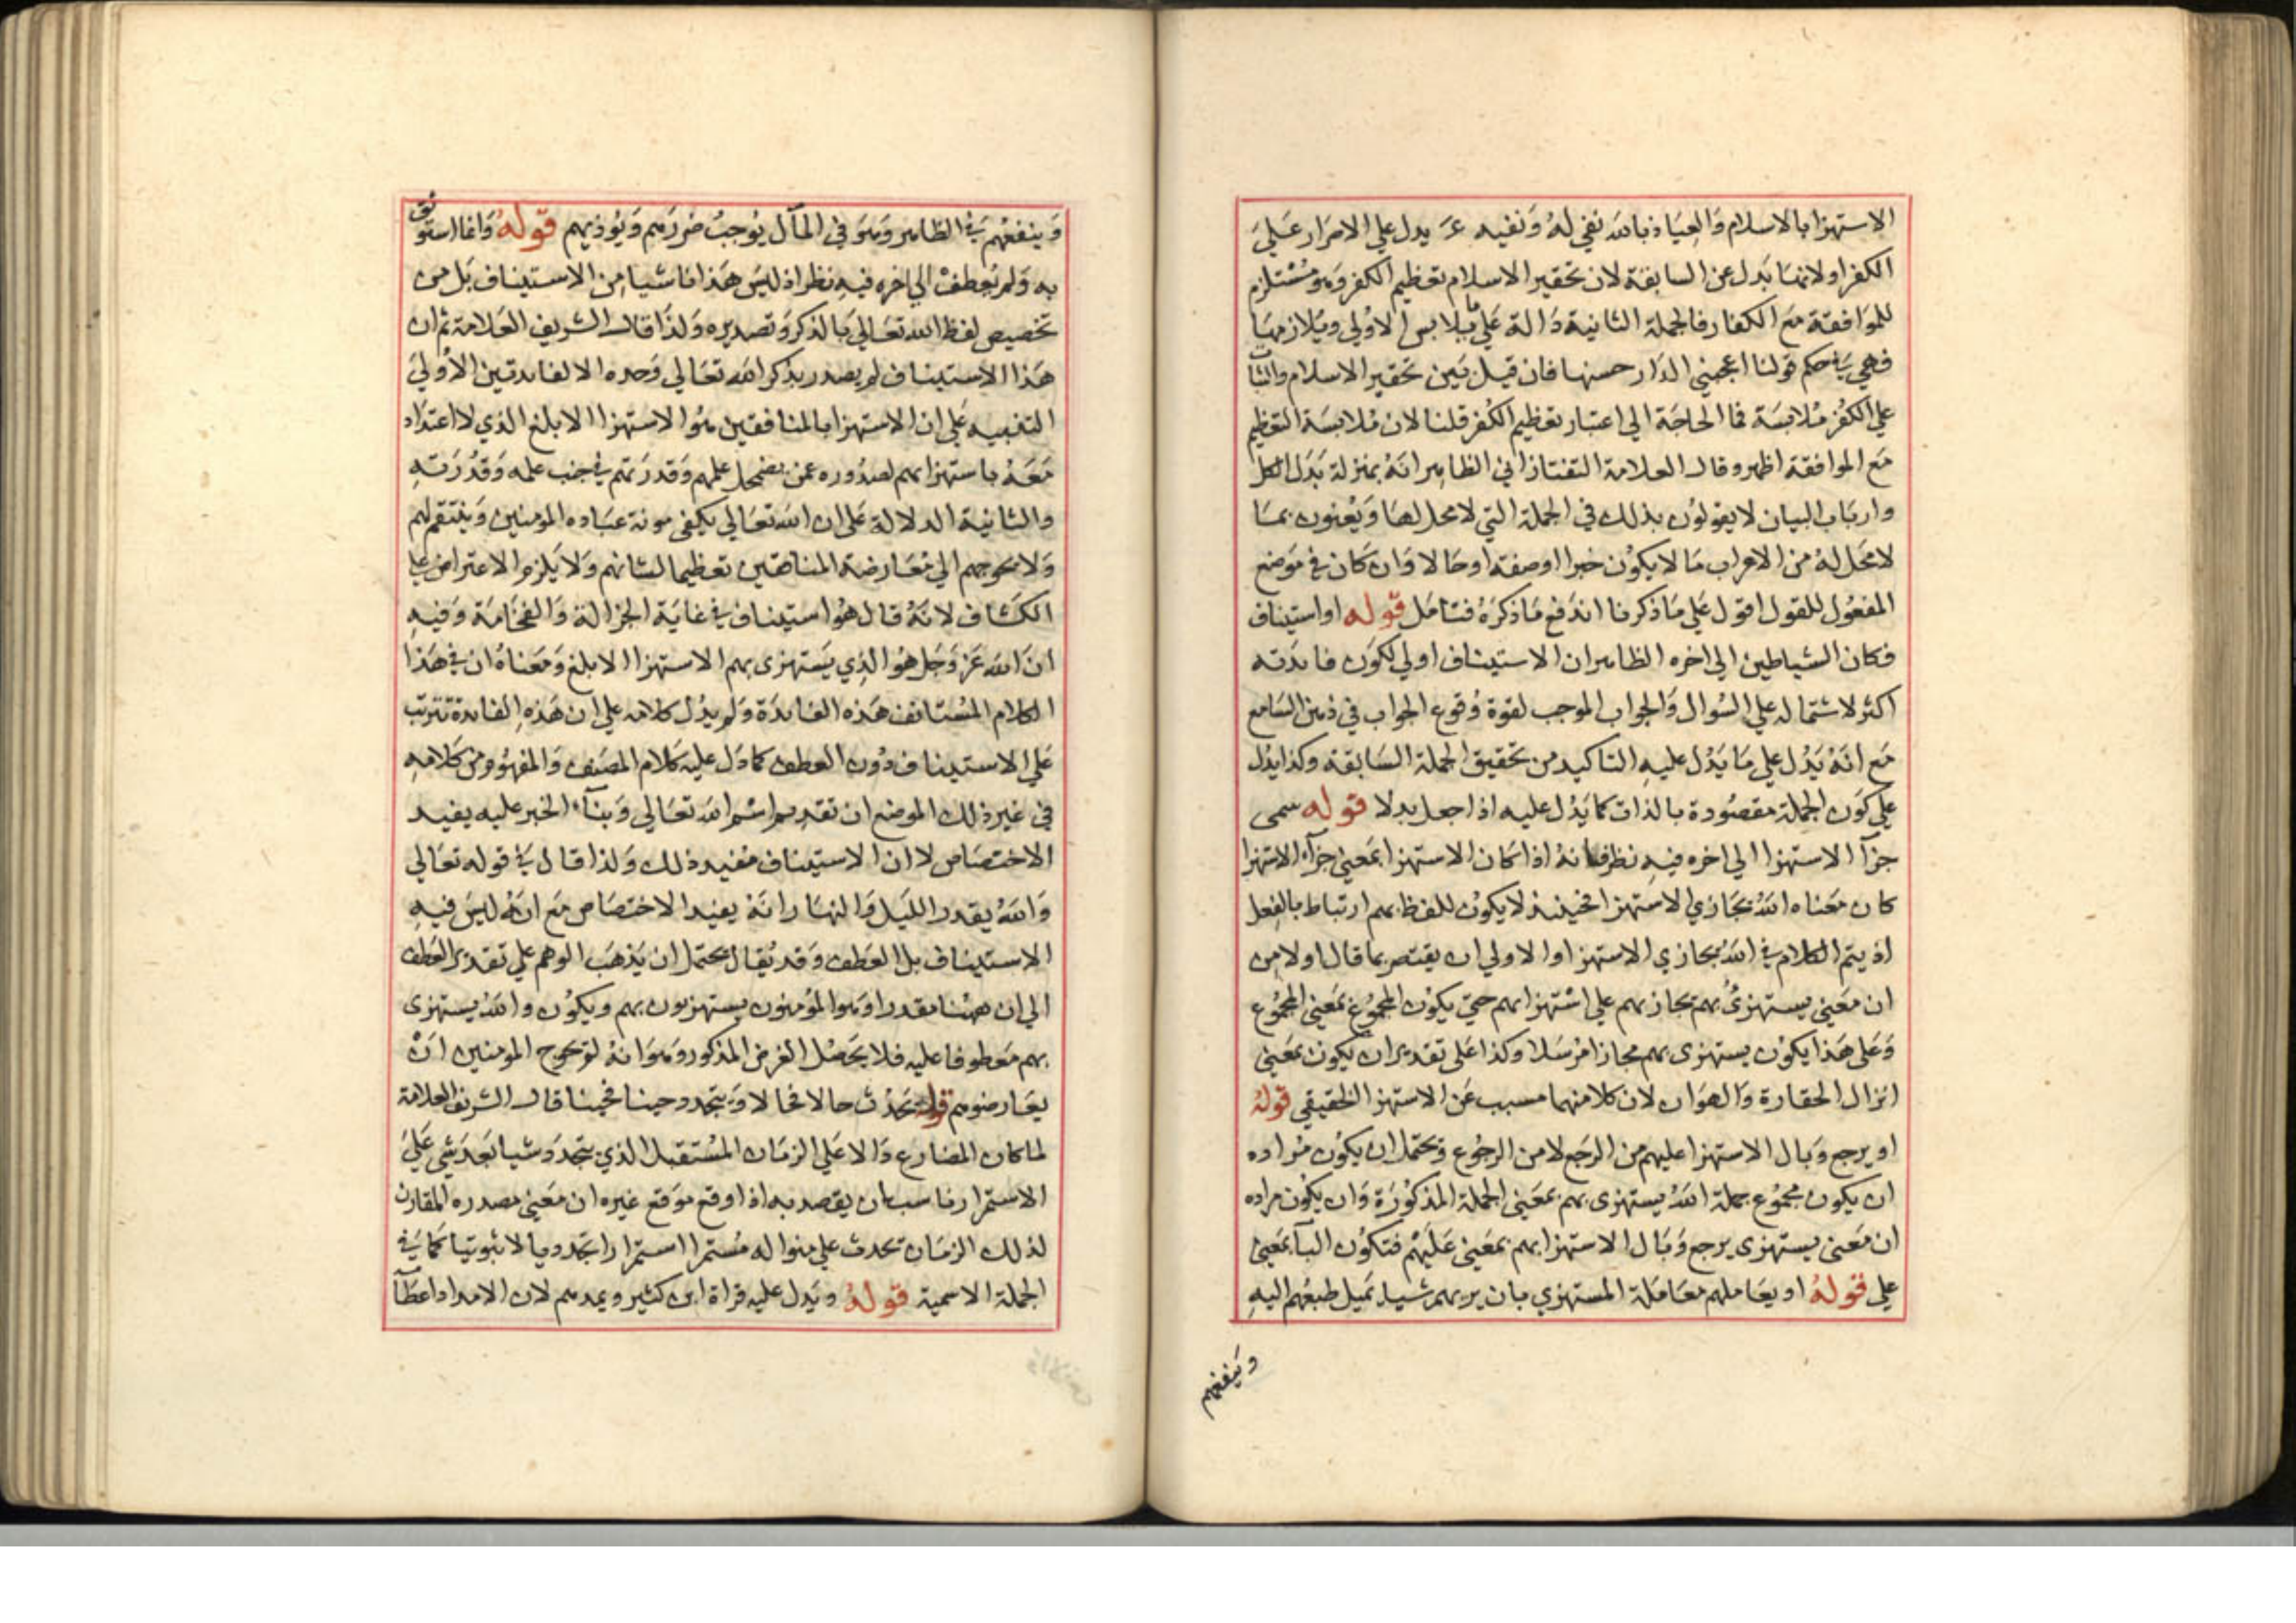 الاستهزا بالاسلام والعياذ بالله نفي له ونفيه عَـ يدل علي الاصرار عَلي
الكفر اولانها بَدل عن السابقة لان تحقير الاسلام تعظيم الكفر وهو مُسْتلزم
للموَافقة مَع الكفار فالجملة الثانية دَالة عَلي ما يلابس الاوُلي ويُلازمها
فهي في حكم قولنا اعجبني الدَار حسنها فان قيل بَين تحقير الاسلام والثبات
علي الكفُر مُلابسَة فما الحاجَة الي اعتبار تعظيم الكُفر قلنا لان مُلابسَة التعظيم
مَع الموافقة اظهر وقال العلامة التفتازاني الظاهر انهُ بمنزلة بَدَل الكل
وارباب البيان لا يقولوُن بذلك في الجملة التي لا محل لها وَيُعنون بما
لا محَل لهُ من الاعراب مَا لا يكوُن خبرا اوصفة اوحَالا وَان كَان في مَوضع
المفعُول للقول اقول عَلي مَا ذكرنا اندَفع مَا ذكرَهُ فتامَل قوله او استيناف
فكان الشياطين الي اخره الظاهر ان الاستيناف اولي لكوَن فايدَته
اكثر لاشتماله علي السُوال وَالجواب الموجب لقوة وُقوع الجواب في ذهن السَامع
مَع انهُ يَدُل علي مَا يَدُل عليهِ التاكيد من تحقيق الجملة السَابقة وكذا يدُل
علي كوَن الجملة مقصُودة بالذات كما يَدُل عليه اذا جعل بدلا قوله سمى
جزآ الاستهزا الي اخره فيهِ نظر فانهُ اذا كان الاستهزا بمَعني جزآء الاستهزا
كان مَعناه اللهُ يجَازي الاستهزا فحينئذ لا يكوُن للفظ بهم ارتباط بالفعل
اذ يتم الكلام في اللهُ يجازي الاستهزا والاولي ان يقتصر بما قال اولا من
ان مَعني يستهزئُ بهم يجازيهم علي اسْتهزايهم حتي يكوُن المجموُع بمَعني المجموُع
وَعَلي هَذا يكوُن يستهزى بهم مجازا مُرسَلا وكذا عَلى تقدير ان يكون بمَعني
انزال الحقارة وَالهوَان لان كلا منهما مسبب عَن الاستهزا الحقيقي قولهُ
او يرجع وَبال الاستهزا عليهم من الرجَع لا من الرجوُع وَيحتمل ان يكوُن مُراده
ان يكون مجموُع جملة اللهُ يستهزى بهم بمعَني الجملة المذكوُرَة وَان يكوُن مراده
ان مَعني يستهزى يرجع وَبَال الاستهزا بهم بمعَني عَليْهم فتكوُن البآ بمَعني
علي قولهُ او يعَاملهم معَامَلة المستهزي بان يريهم شيا يَميل طبعُهم اليهِ
وينفعهم
وَينفعُهم في الظاهر وَهوَ في المآل يوُجبُ ضررَهم وَيُوذيهم قولهُ وَانما استونف
به وَلم يُعطفْ الي اخره فيهِ نظر اذ ليسَ هَذا ناشيا مِن الاستيناف بَل من
تخصيص لفظ الله تعَالي بالذكر وَتصديره وَلذَا قال الشريف العَلامة ثم ان
هَذا الاستيناف لم يصدر بذكر الله تعَالي وَحده الا لفايدتين الاوُلي
التنبيه عَلي ان الاستهزا بالمنافقين هوُ الاستهزا الابلغ الذي لا اعتدَاد
مَعَهُ باستهزايهم لصدُوره عمن يضمحل علمهم وَقدرَتهم في جنب علمه وَقدُرَتهِ
والثانية الدلالة عَلي ان الله تعَالي يكفي مونة عبَاده المومنين وَينتقم لهم
وَلا يحوجهم الي مُعَارضة المنافقين تعظيما لشانهم وَلا يَلزم الاعتراض علي
الكشاف لانهُ قال هوُ استيناف في غايَة الجزالة وَالفخامَة وَفيهِ
انَ الله عَز وَجَل هوُ الذِي يسَتهزى بهم الاستهزا الابلغ ومَعَناهُ ان في هَذا
الكلام المسُتانف هَذه الفايدَة وَلم يدُل كلامه علي ان هَذهِ الفايدة تترتب
عَلي الاستيناف دوُن العطف كما دَل عليه كلام المصَنف وَالمفهوُم من كلامهِ
في غير ذلك الموضع ان تقديم اسْم الله تعَالي وَبنآء الخبر عليه يفيد
الاختصَاص لا ان الاستيناف مُفيد ذلك وَلذا قال في قوله تعَالي
وَاللهُ يقدر الليل وَالنهَار انهُ يفيد الاختصَاص مَع انهُ ليسَ فيهِ
الاستيناف بل العَطف وَقد يُقال يحتمل ان يَذهَب الوهم علي تقدير العَطف
الي ان ههُنا مقدرا وَهوا لموُمنون يستهزيون بهم ويكوُن والله يستهزى
بهم مَعطوفا عليه فلا يَحصُل الغرض المذكور وَهوَ انهُ لم يحوج المومنين انْ
يعَارضوهم قوله يَحدُث حالا فحالا وَيَتجدد حينا فحينا قال الشريف العلامة
لما كان المضارع دَالا عَلي الزمَان المُستقبل الذي يتجدَد شيا بَعدَ شي عَليَ
الاستمرار ناسب ان يقصد به اذا وقع مَوقع غيره ان مَعني مصدره المقارن
لذلك الزمَان يحدث علي منوَاله مُستمرا استمرارا تجَدديا لا ثبوتيا كما في
الجملة الاسمية قولهُ ويَدل عليه قراة ابن كثير ويمدهم لان الامداد اعطآ